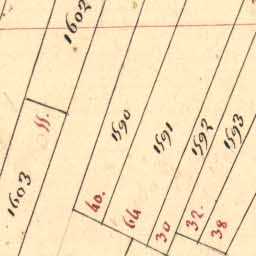 1602
1590
1591
1592
1593
55.
1603
40.
64
30
32.
38